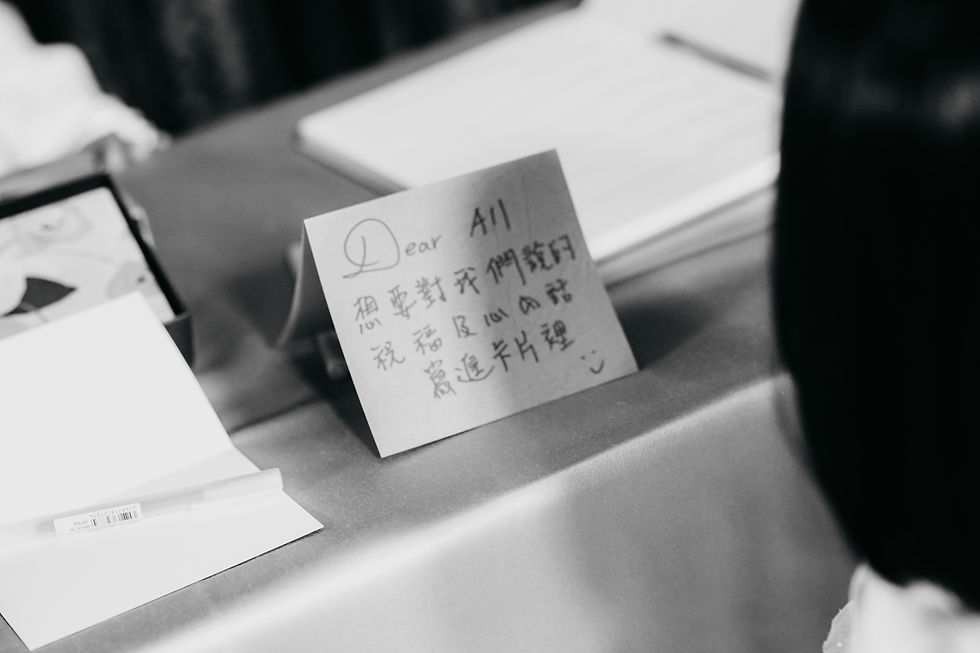 Dear All
想要對我們說的
祝福及心內話
寫進卡片裡